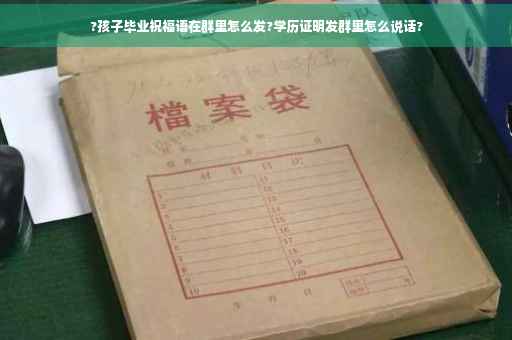 ?孩子毕业祝福语在群里怎么发?学历证明发群里怎么说话?
檔案袋
材料目次
1 11
2 12
3 13
4 14
5 15
6 16
7 17
8 18
9 19
10 20
年 月 日